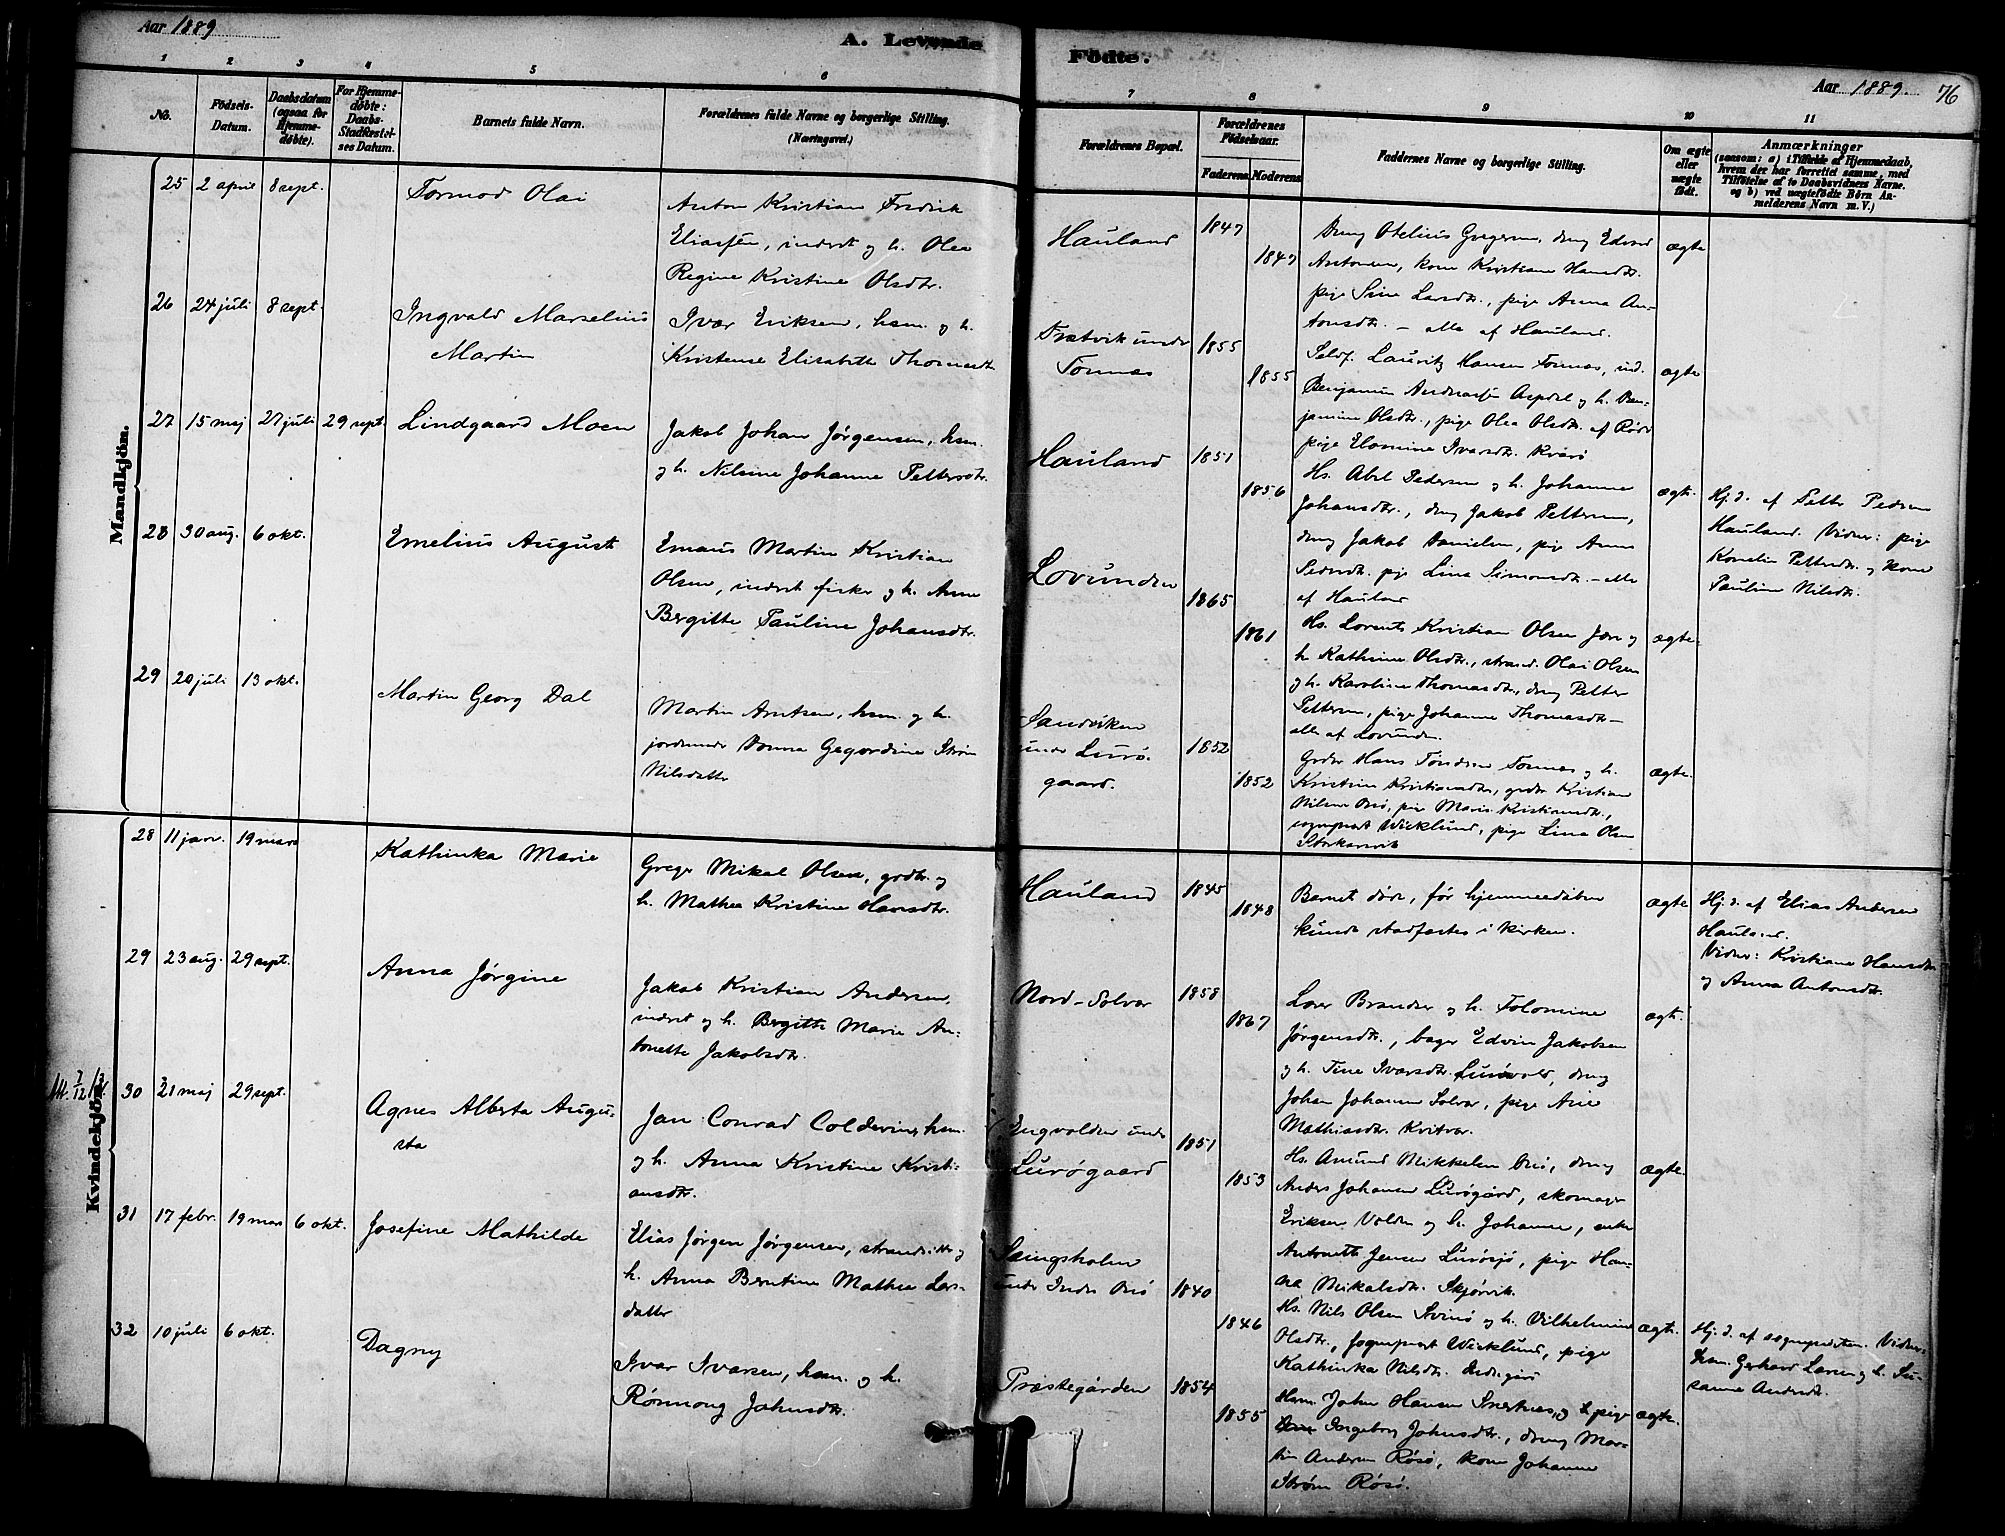 Aar 1889
A. Levende
Födte.
Aar 1889. 76
1 2 3 4 5 6 7 8 9 10 11
No.
Födsels-Datum.
Daabsdatum (ogsaa for Hjemmedöbte).
For Hjemmedöbte: Daabs-Stadfæstelses Datum.
Barnets fulde Navn.
Forældrenes fulde Navne og borgerlige Stilling. (Næringsvei.)
Forældrenes Bopæl.
Forældrenes Födselsaar.
Faderens. Moderens.
Faddernes Navne og borgerlige Stilling.
Om ægte eller uægte födt.
Anmærkninger
(saasom: a) i Tilfælde af Hjemmedaab, hvem der har forrettet samme, med Tilföielse af to Daabsvidners Navne. og b) ved uægtefödte Börn Anmelderens Navn m. V.)
Mandkjön.
25 2 april 8 sept.
Tormod Olai
Anton Kristian Fredrik
Eliassen, inderst og h. Olea
Regine Kristine Olsdtr.
Hauland
1847
1847
Dreng Otelius Gregersen, dreng Edvard
Antonsen, kone Kristiane Hansdtr.
pige Sine Larsdtr., pige Anna An-
tonsdtr. – alle af Hauland.
ægte
26 24 juli 8 sept.
Ingvald Marselius
Martin
Ivar Eriksen, hsm. og h.
Kristense Elisabeth Thomasdtr
Tonnes
1855
1855
Selvf. Lauritz Hansen Tonnes, ind.
Benjamin Andreassen Aspdal og h. Ben-
jamine Olsdtr., pige Olea Olsdtr. af Rödö
pige Elomine Ivarsdtr. Kvarö
ægte
27 15 maj 27 juli 29 sept.
Lindgaard Moen
Jakob Johan Jørgensen, hsm.
og h. Nilsine Johanne Pettersdtr.
Hauland
1851
1856
Hs. Abel Pedersen og h. Johanne
Johansdtr., dreng Jakob Pettersen,
dreng Jakob Danielsen, pige Anne
Pedersdtr. pige Lina Simonsdtr. – alle
af Hauland
ægt.
Hj.d. af Petter Pedersen
Hauland. Vidner: pige
Konelie Pettersdtr. og kone
Pauline Nilsdtr.
28 30 aug. 6 okt.
Emelius August
Emaus Martin Kristian
Olsen, inderst fisker og h. Anne
Bergitte Pauline Johansdtr.
Lovunden
1865
1861
Hs. Lorents Kristian Olsen og
h. Kathrine Olsdtr., strands. Olai Olsen
og h. Karoline Thomasdtr., dreng Petter
Pettersen, pige Johanne Thomasdtr –
alle af Lovunden.
ægte.
29 20 juli 13 okt.
Martin Georg Dal
Martin Arntsen, hsm. og h.
jordemoder Gegordine Strøm
Nilsdatter
Sandviken
under Lurö-
gaard.
1852
1852
Grdbr Hans Tonnes og h.
Kristine Kristiansdtr, grdbr Kristian
Nilsen Onö, pige Maria Kristiansdtr.,
sogneprest Wicklund, pige Lina Olsen
ægte.
Kvindekjön.
28 11 janr. 19 mars
Kathinka Marie
Greger Mikal Olsen, grdbr. og
h. Mathea Kristine Hansdtr.
Hauland
1845
1848
Barnet döde, för hjemmedåben
kunde stadfæstes i kirken.
ægte
Hj.d. af Elias Andersen
Hauland.
Vidner: Kristiane Hansdtr
og Anna Antonsdtr.
29 23 aug. 29 sept.
Anna Jørgine
Jakob Kristian Andersen,
inderst og h. Bergitte Marie An-
tonette Jakobsdtr.
Nord-Solvær
1858
1867
Brandser og h. Tolomine
Jørgensdtr., bager Edvin Jakobsen
og h. Tine Ivarsdtr. Lurövold, dreng
Johan Johansen Solvær, pige Ane
Mathiasdtr. Kvitvær.
ægt.
30 21 maj 29 sept.
Agnes Alberta Augu-
sta
Jan Conrad Coldevin, hsm.
og h. Anna Kristine Kristi-
ansdtr.
Engvolden under
Lurögaard
1851
1853
Hs. Amund Mikkelsen Onö, dreng
Anders Johansen Lurögård, skomager
Eriksen Volden og h. Johanne, enke
Antonette Jensen Lurösjö, pige Han-
na Mikalsdtr. Skjærvik.
ægte
31 17 febr. 19 mars 6 okt.
Josefine Mathilde
Elias Jørgen Jørgensen, strandsitter og
h. Anna Berntine Mathea Lars-
datter
under Indre Onö
1840
1846
Hs. Nils Olsen Svinö og h. Vilhelmine
Olsdtr., sogneprest Wicklund, pige
Kathinka Nilsdtr.
ægt.
Hj.d. af sognepresten. Vidner:
hsm. Gerhard Larsen og h. Su-
sanne Andersdtr.
32 10 juli 6 okt.
Dagny
Ivar Ivarsen, hsm. og h.
Rønnong Johnsdtr.
Præstegården
1854
1855
Hsm. John Hansen og pige
Ingeborg Johnsdtr., dreng Mar-
tin Andersen Røsö, kone Johanne
Strøm Røsö.
ægte.